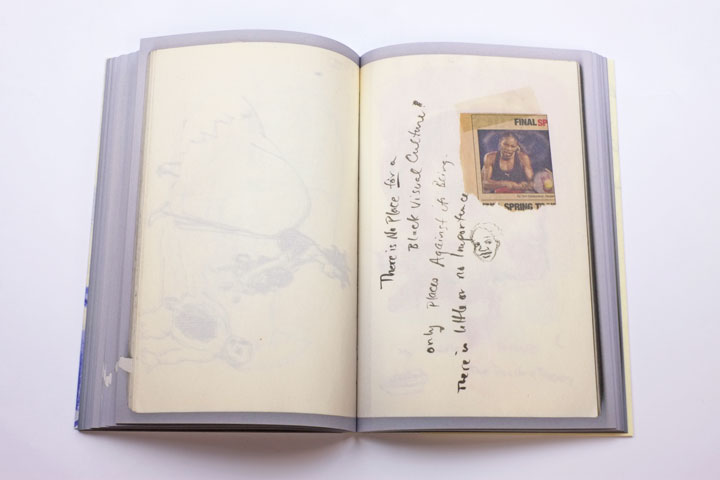 There is No Place for a
Black Visual Culture!
only Places Against its Being.
There is little or no Importance
FINAL SP
SPRING T